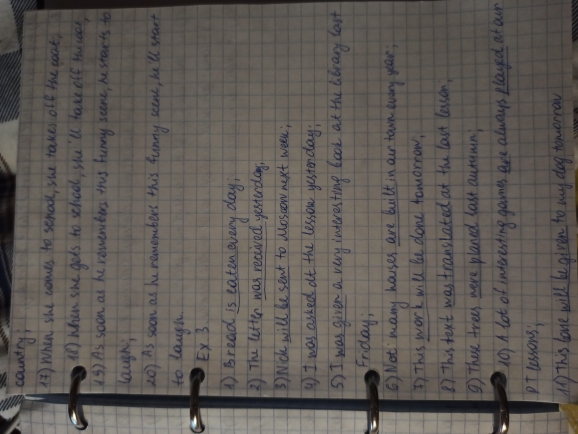 country;
17) When she comes to school, she takes off the coat;
18) When she gets to school, she'll take off the coat;
19) As soon as he remembers this funny scene, he starts to
laugh;
20) As soon as he remembers this funny scent, he'll start
to laugh.
Ex 3
1) Bread is eaten every day;
2) The letter was received yesterday;
3) Nick will be sent to Moscow next week;
4) I was asked at the lesson yesterday;
5) I was given a very interesting book at the library last
Friday;
6) Not many houses are built in our town every year;
7) This work will be done tomorrow;
8) This text was translated at the last lesson;
9) These trees were planed last autumn;
10) A lot of interesting games are always played at our
PT lessons;
11) This bone will be given to my dog tomorrow